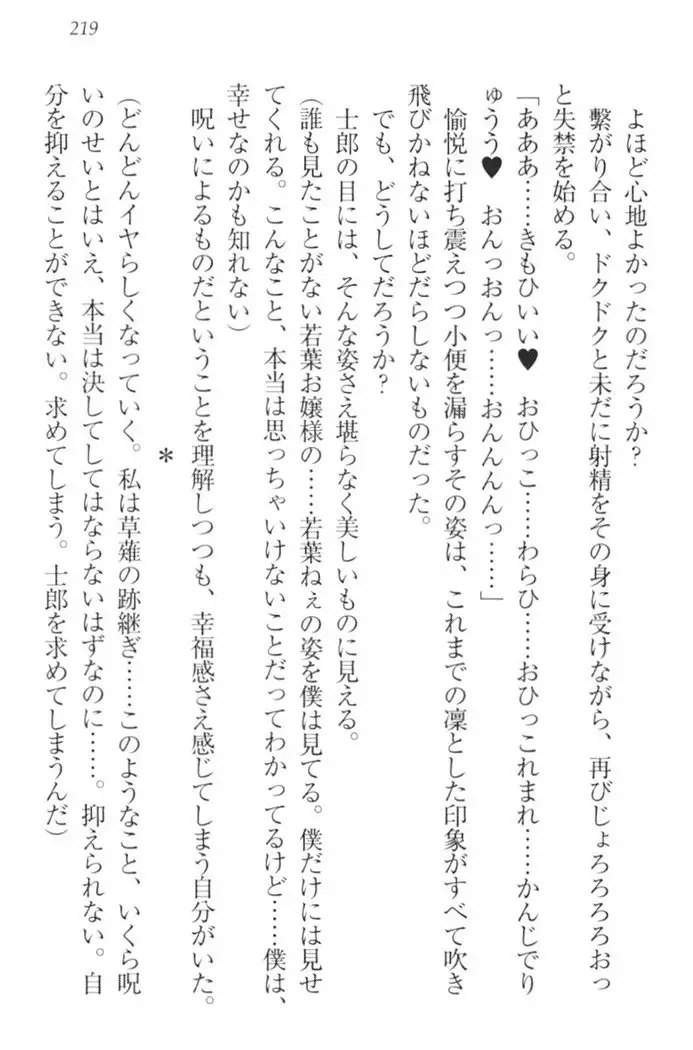 219
よほど心地よかったのだろうか?
繋がり合い、ドクドクと未だに射精をその身に受けながら、再びじょろろろろおっ
と失禁を始める。
「あああ……きもひいい♥　おひっこ……わらひ……おひっこれまれ……かんじでり
ゅうう♥　おんっおんっ……おんんんんっ……」
愉悦に打ち震えつつ小便を漏らすその姿は、これまでの凜とした印象がすべて吹き
飛びかねないほどだらしないものだった。
でも、どうしてだろうか?
士郎の目には、そんな姿さえ堪らなく美しいものに見える。
(誰も見たことがない若葉お嬢様の……若葉ねぇの姿を僕は見てる。僕だけには見せ
てくれる。こんなこと、本当は思っちゃいけないことだってわかってるけど……僕は、
幸せなのかも知れない)
呪いによるものだということを理解しつつも、幸福感さえ感じてしまう自分がいた。
*
(どんどんイヤらしくなっていく。私は草薙の跡継ぎ……このようなこと、いくら呪
いのせいとはいえ、本当は決してしてはならないはずなのに……。抑えられない。自
分を抑えることができない。求めてしまう。士郎を求めてしまうんだ)